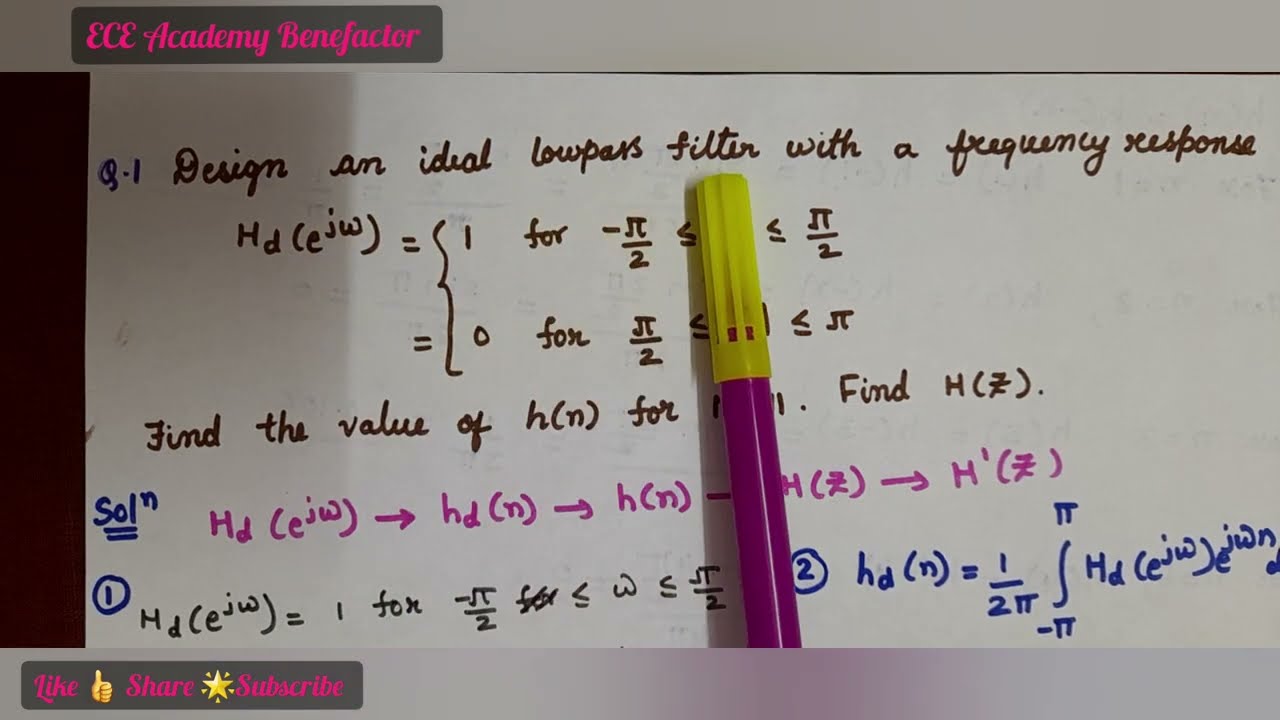 ECE Academy Benefactor
Q.1 Design an ideal lowpass filter with a frequency response
H_d(e^{jω}) = { 1 for -π/2 ≤ ≤ π/2
= { 0 for π/2 ≤ | ≤ π
Find the value of h(n) for 11. Find H(Z).
Solⁿ H_d(e^{jω}) → h_d(n) → h(n) → H(Z) → H'(Z)
① H_d(e^{jω}) = 1 for -π/2 ≤ ω ≤ π/2
② h_d(n) = 1/2π ∫_{-π}^{π} H_d(e^{jω}) e^{jωn} d
Like 👍 Share 🌟Subscribe